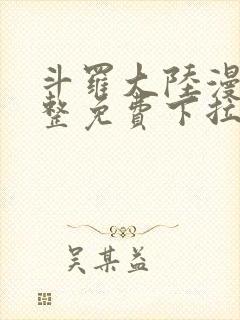 斗羅大陸漫
整免費下拉
吳某益